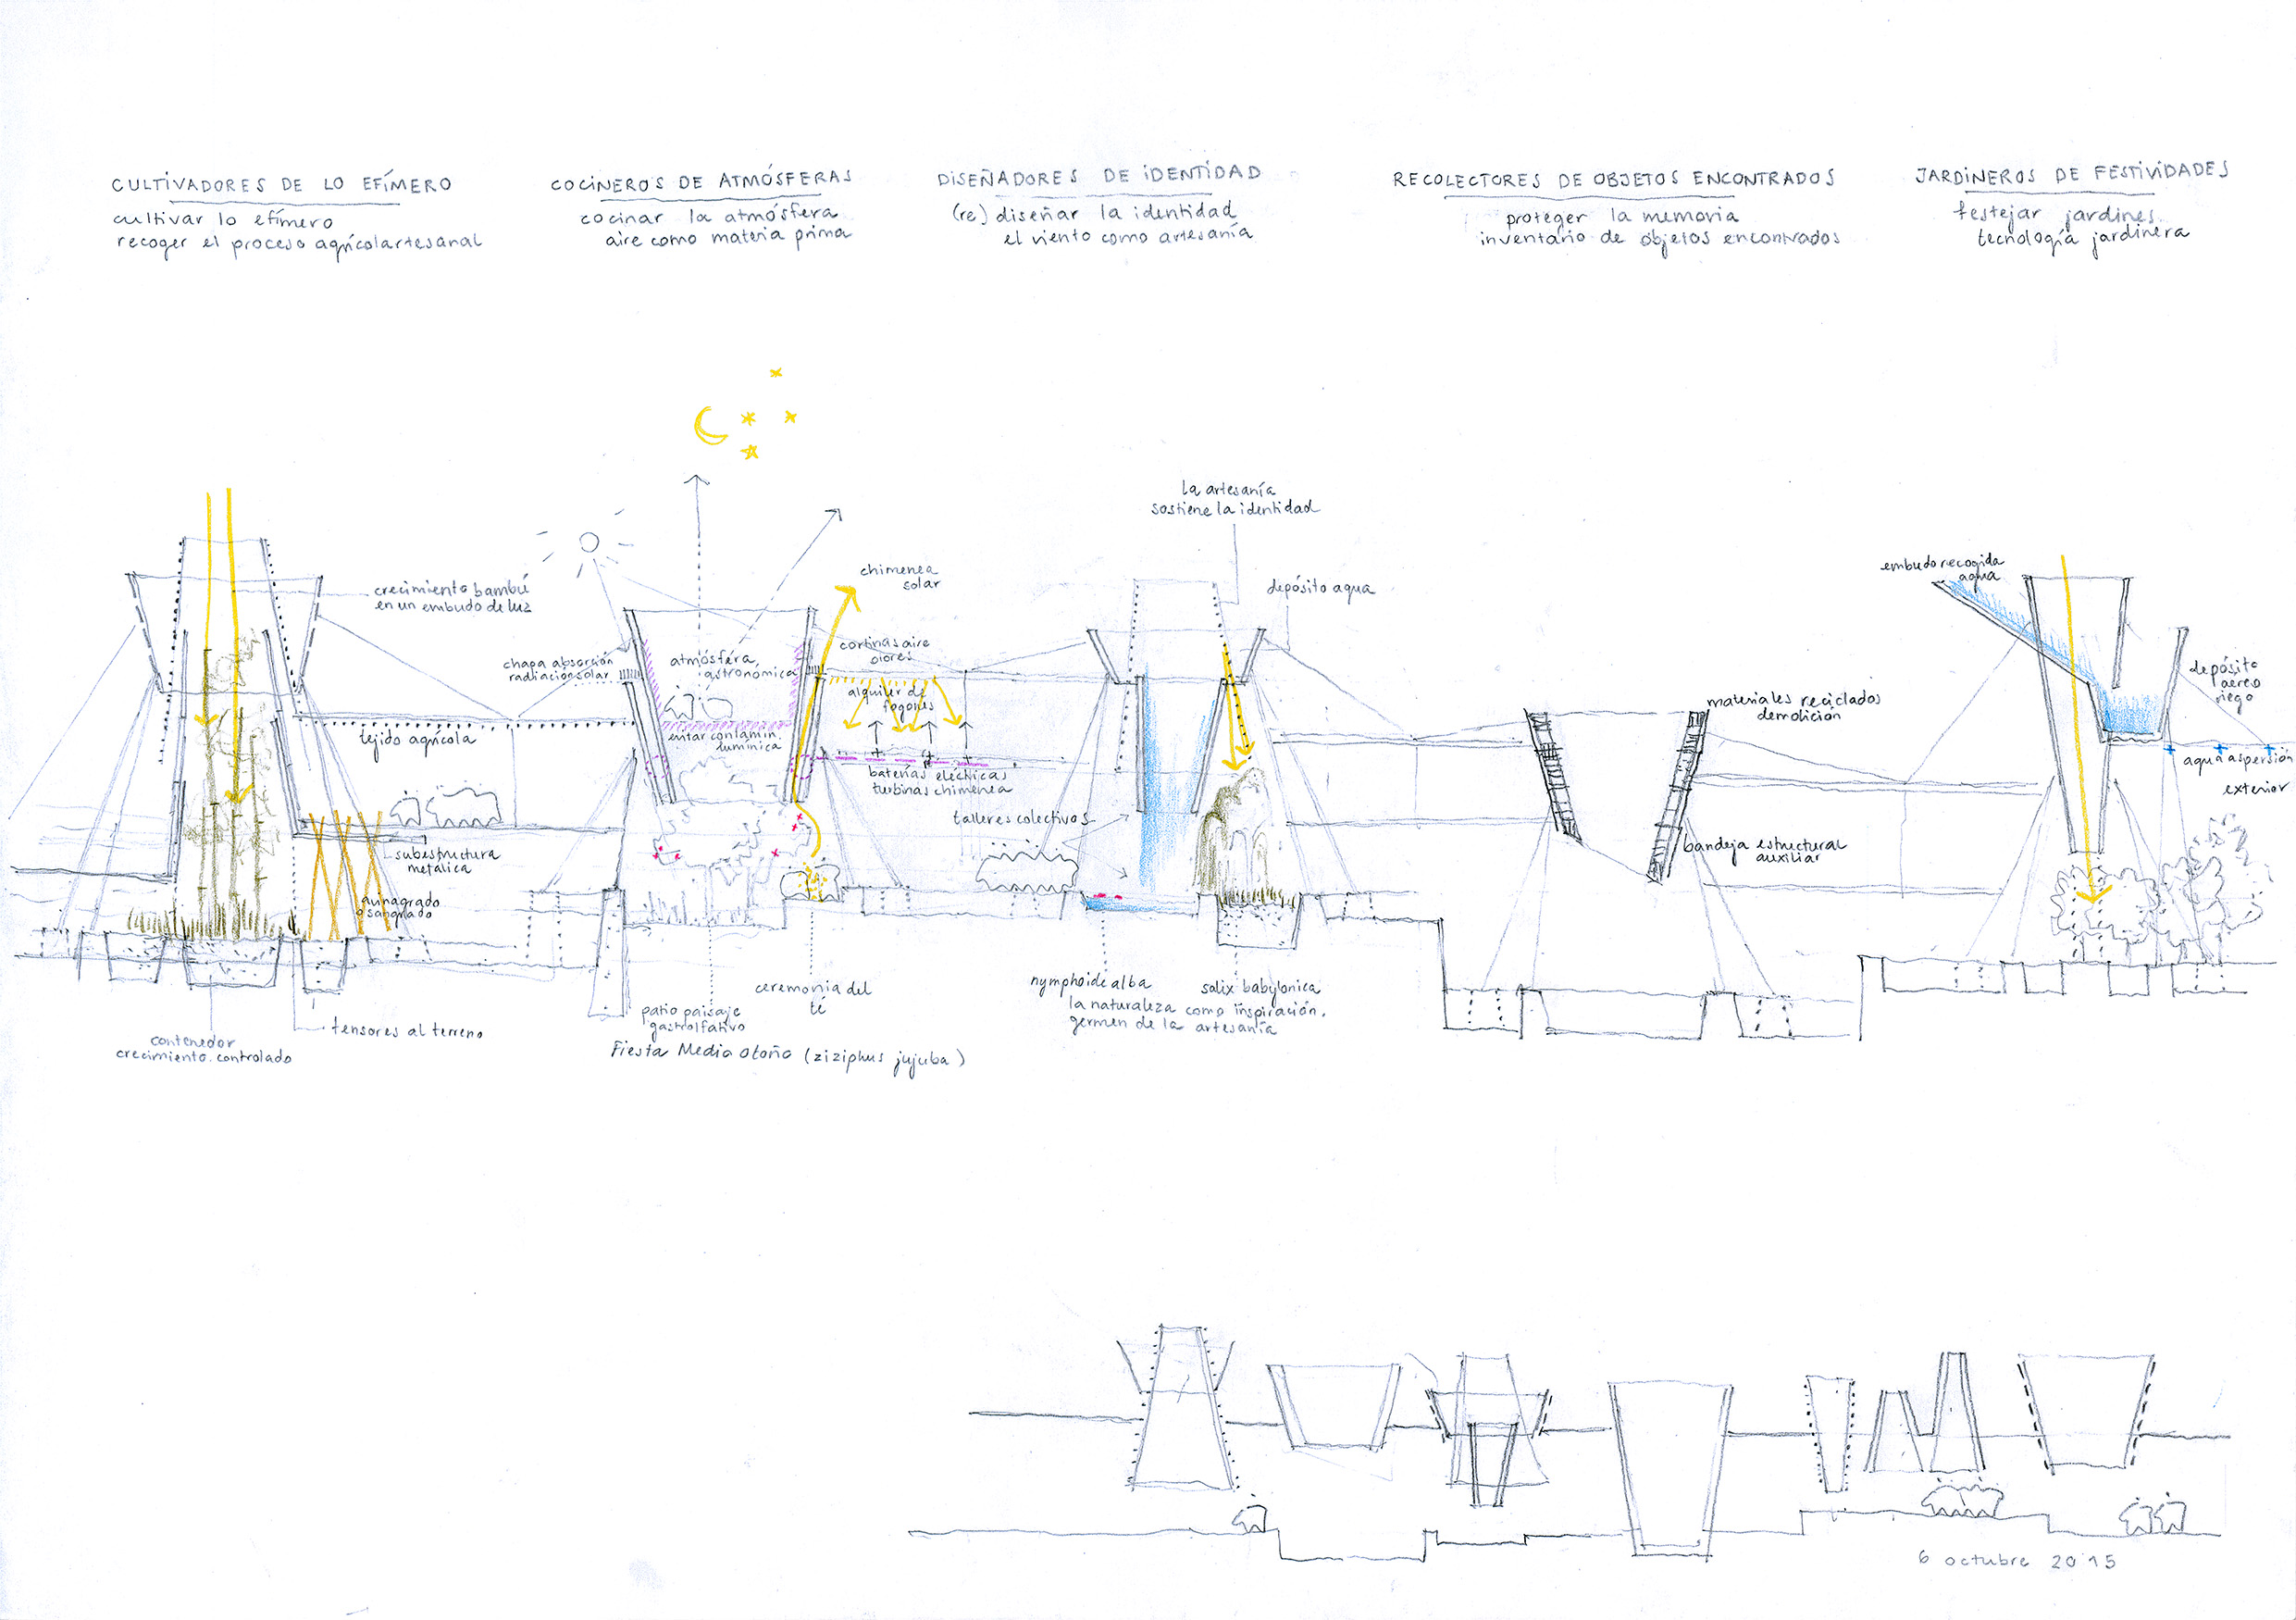 CULTIVADORES DE LO EFÍMERO
cultivar lo efímero
recoger el proceso agrícolartesanal
COCINEROS DE ATMÓSFERAS
cocinar la atmósfera
aire como materia prima
DISEÑADORES DE IDENTIDAD
(re) diseñar la identidad
el viento como artesanía
RECOLECTORES DE OBJETOS ENCONTRADOS
proteger la memoria
inventario de objetos encontrados
JARDINEROS DE FESTIVIDADES
festejar jardines
tecnología jardinera
crecimiento bambú
en un embudo de luz
tejido agrícola
subestructura
metálica
contenedor
crecimiento controlado
tensores al terreno
chapa absorción
radiación solar
atmósfera
gastronómica
evitar contamin.
lumínica
chimenea
solar
cortinas aire
olores
alquiler de
fogones
baterías eléctricas
turbinas chimenea
patio paisaje
gastrolfativo
ceremonia del
té
Fiesta Medio Otoño (ziziphus jujuba)
la artesanía
sostiene la identidad
depósito agua
talleres colectivos
nymphoide alba
salix babylonica
la naturaleza como inspiración,
germen de la artesanía
materiales reciclados
demolición
bandeja estructural
auxiliar
embudo recogida
agua
depósito
aéreo
riego
agua aspersión
exterior
6 octubre 2015